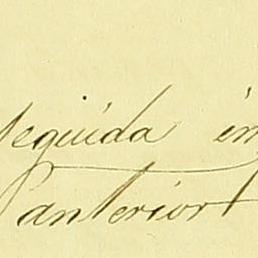 seguida
anterior